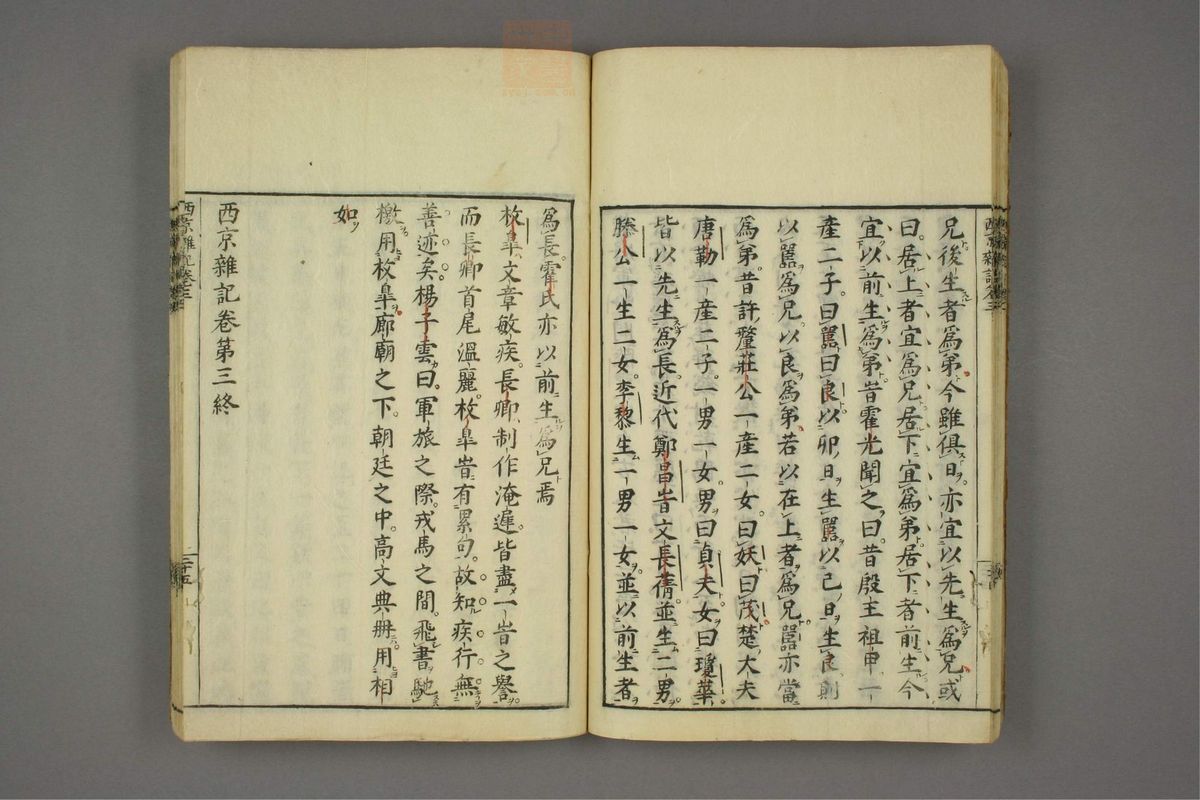 兄後生者爲弟今雖俱日亦宜以先生爲兄或
曰居上者宜爲兄居下宜爲弟居下者前生今
宜以前生爲弟旹霍光聞之曰昔殷王祖甲一
產二子曰嚚曰良以卯日生嚚以巳日生良則
以嚚爲兄以良爲弟若以在上者爲兄嚚亦當
爲弟昔許釐莊公一產二女曰妖曰茂楚大夫
唐勒一產二子一男一女男曰貞夫女曰瓊華
皆以先生爲長近代鄭昌旹文長蒨並生二男
滕公一生二女李黎生一男一女並以前生者
爲長霍氏亦以前生爲兄焉
枚臯文章敏疾長卿制作淹遲皆盡一旹之譽
而長卿首尾溫麗枚臯旹有累句故知疾行無
善迹矣楊子雲曰軍旅之際戎馬之間飛書馳
檄用枚臯廊廟之下朝廷之中高文典冊用相
如
西京雜記卷第三終